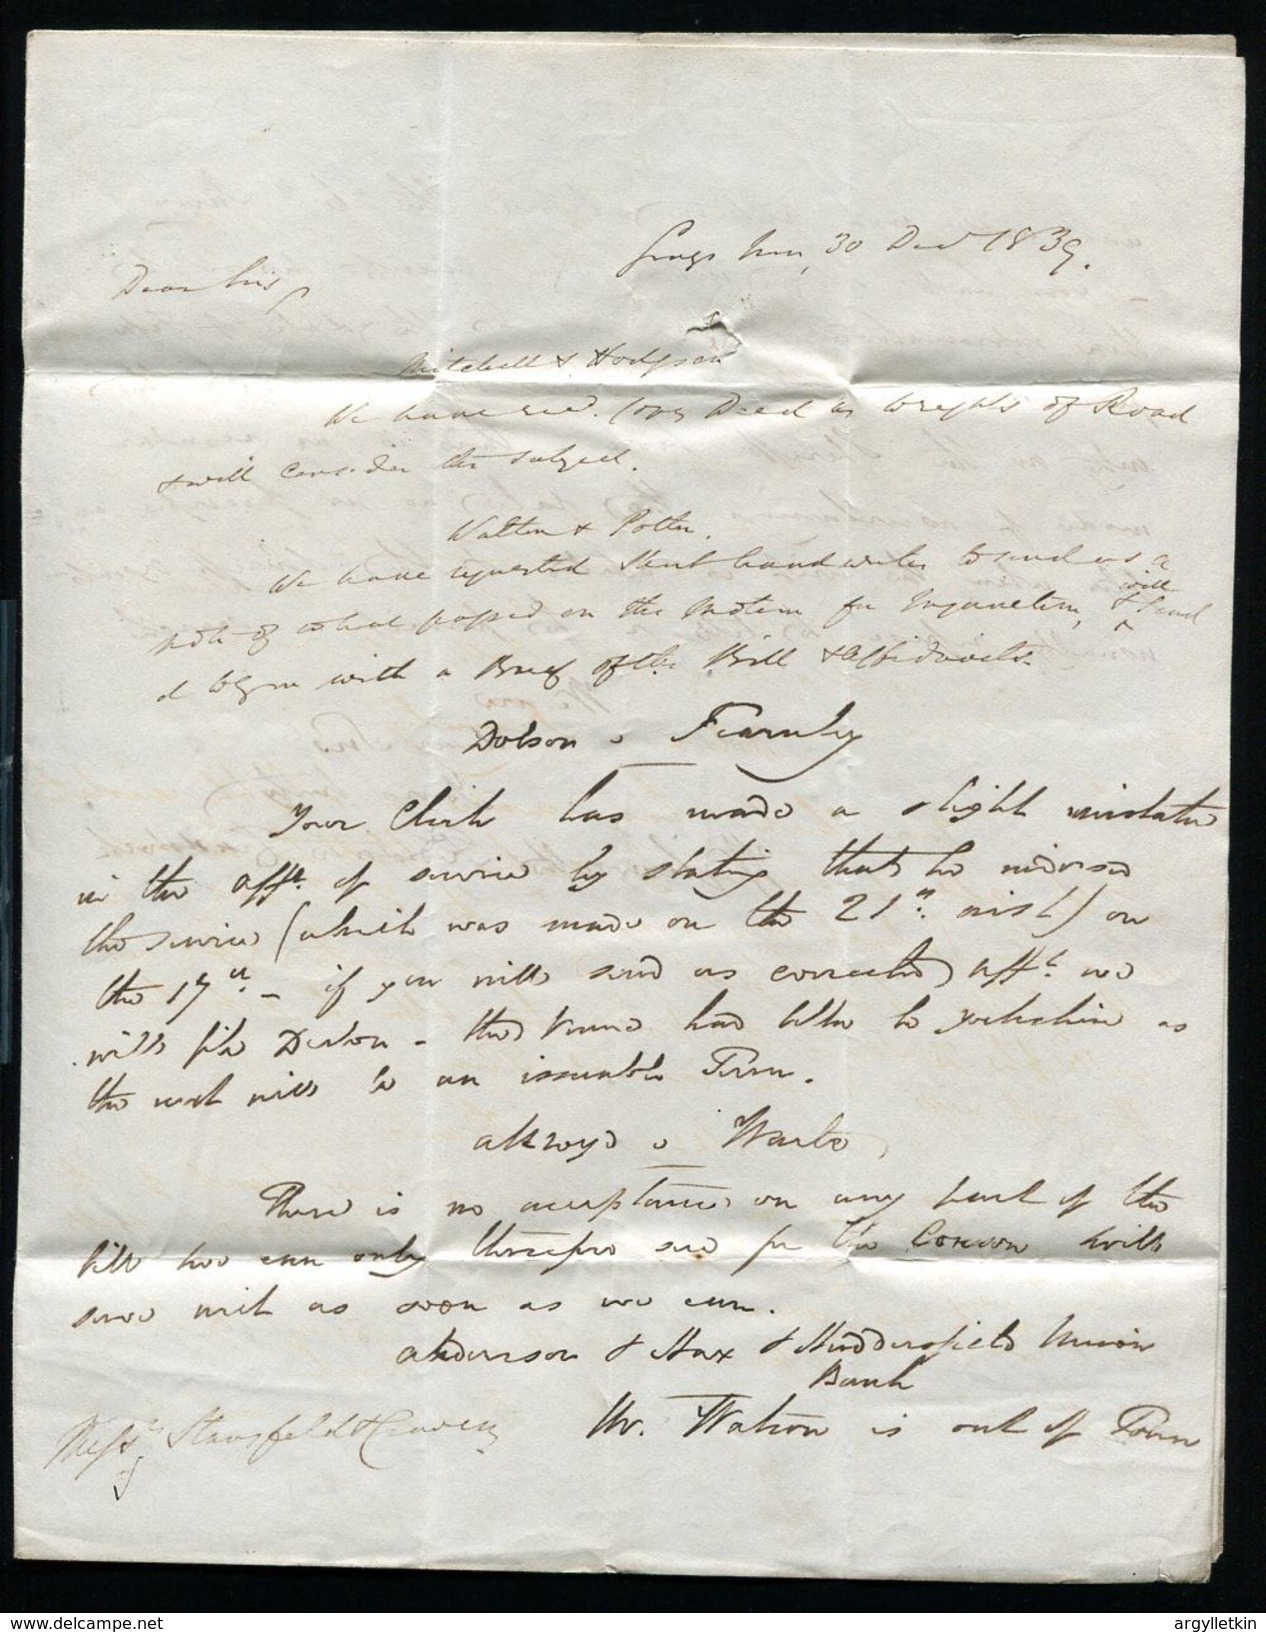 Grays Inn, 30 Decr 1839.
Dear Sirs,
Mitchell & Hodgson
We have recd. Copy Deed as to rights of Road
& will consider the subject.
Walton & Potter.
We have requested Short hand writer to send us a
will
note of what passed on the Motion for Injunction, & send
it to you with a Brief of the Bill & Affidavits.
Dobson v Fearnley
Your Clerk has made a slight mistake
in the afft. of service by stating that he indorsed
the service (which was made on the 21st. inst) on
the 17th. - if you will send us corrected afft we
will file Decl[] - the Venue had better be Yorkshire as
the next will be an issuable Term.
Akroyd v
There is no acceptance on any part of the
bill we can only therefore sue for the will
serve writ as soon as we can.
Anderson & Hax & Huddersfield Union
Bank
Mr. Watson is out of Town
Messrs Stansfeld & Craven